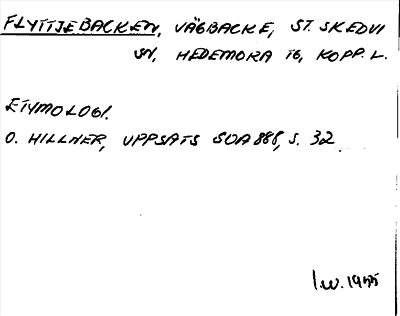 FLYTTJEBACKEN, VÄGBACKE, ST. SKEDVI
SN, HEDEMORA TG, KOPP. L.
ETYMOLOGI.
O. HILLNER, UPPSATS SOA 888, S. 32
1955